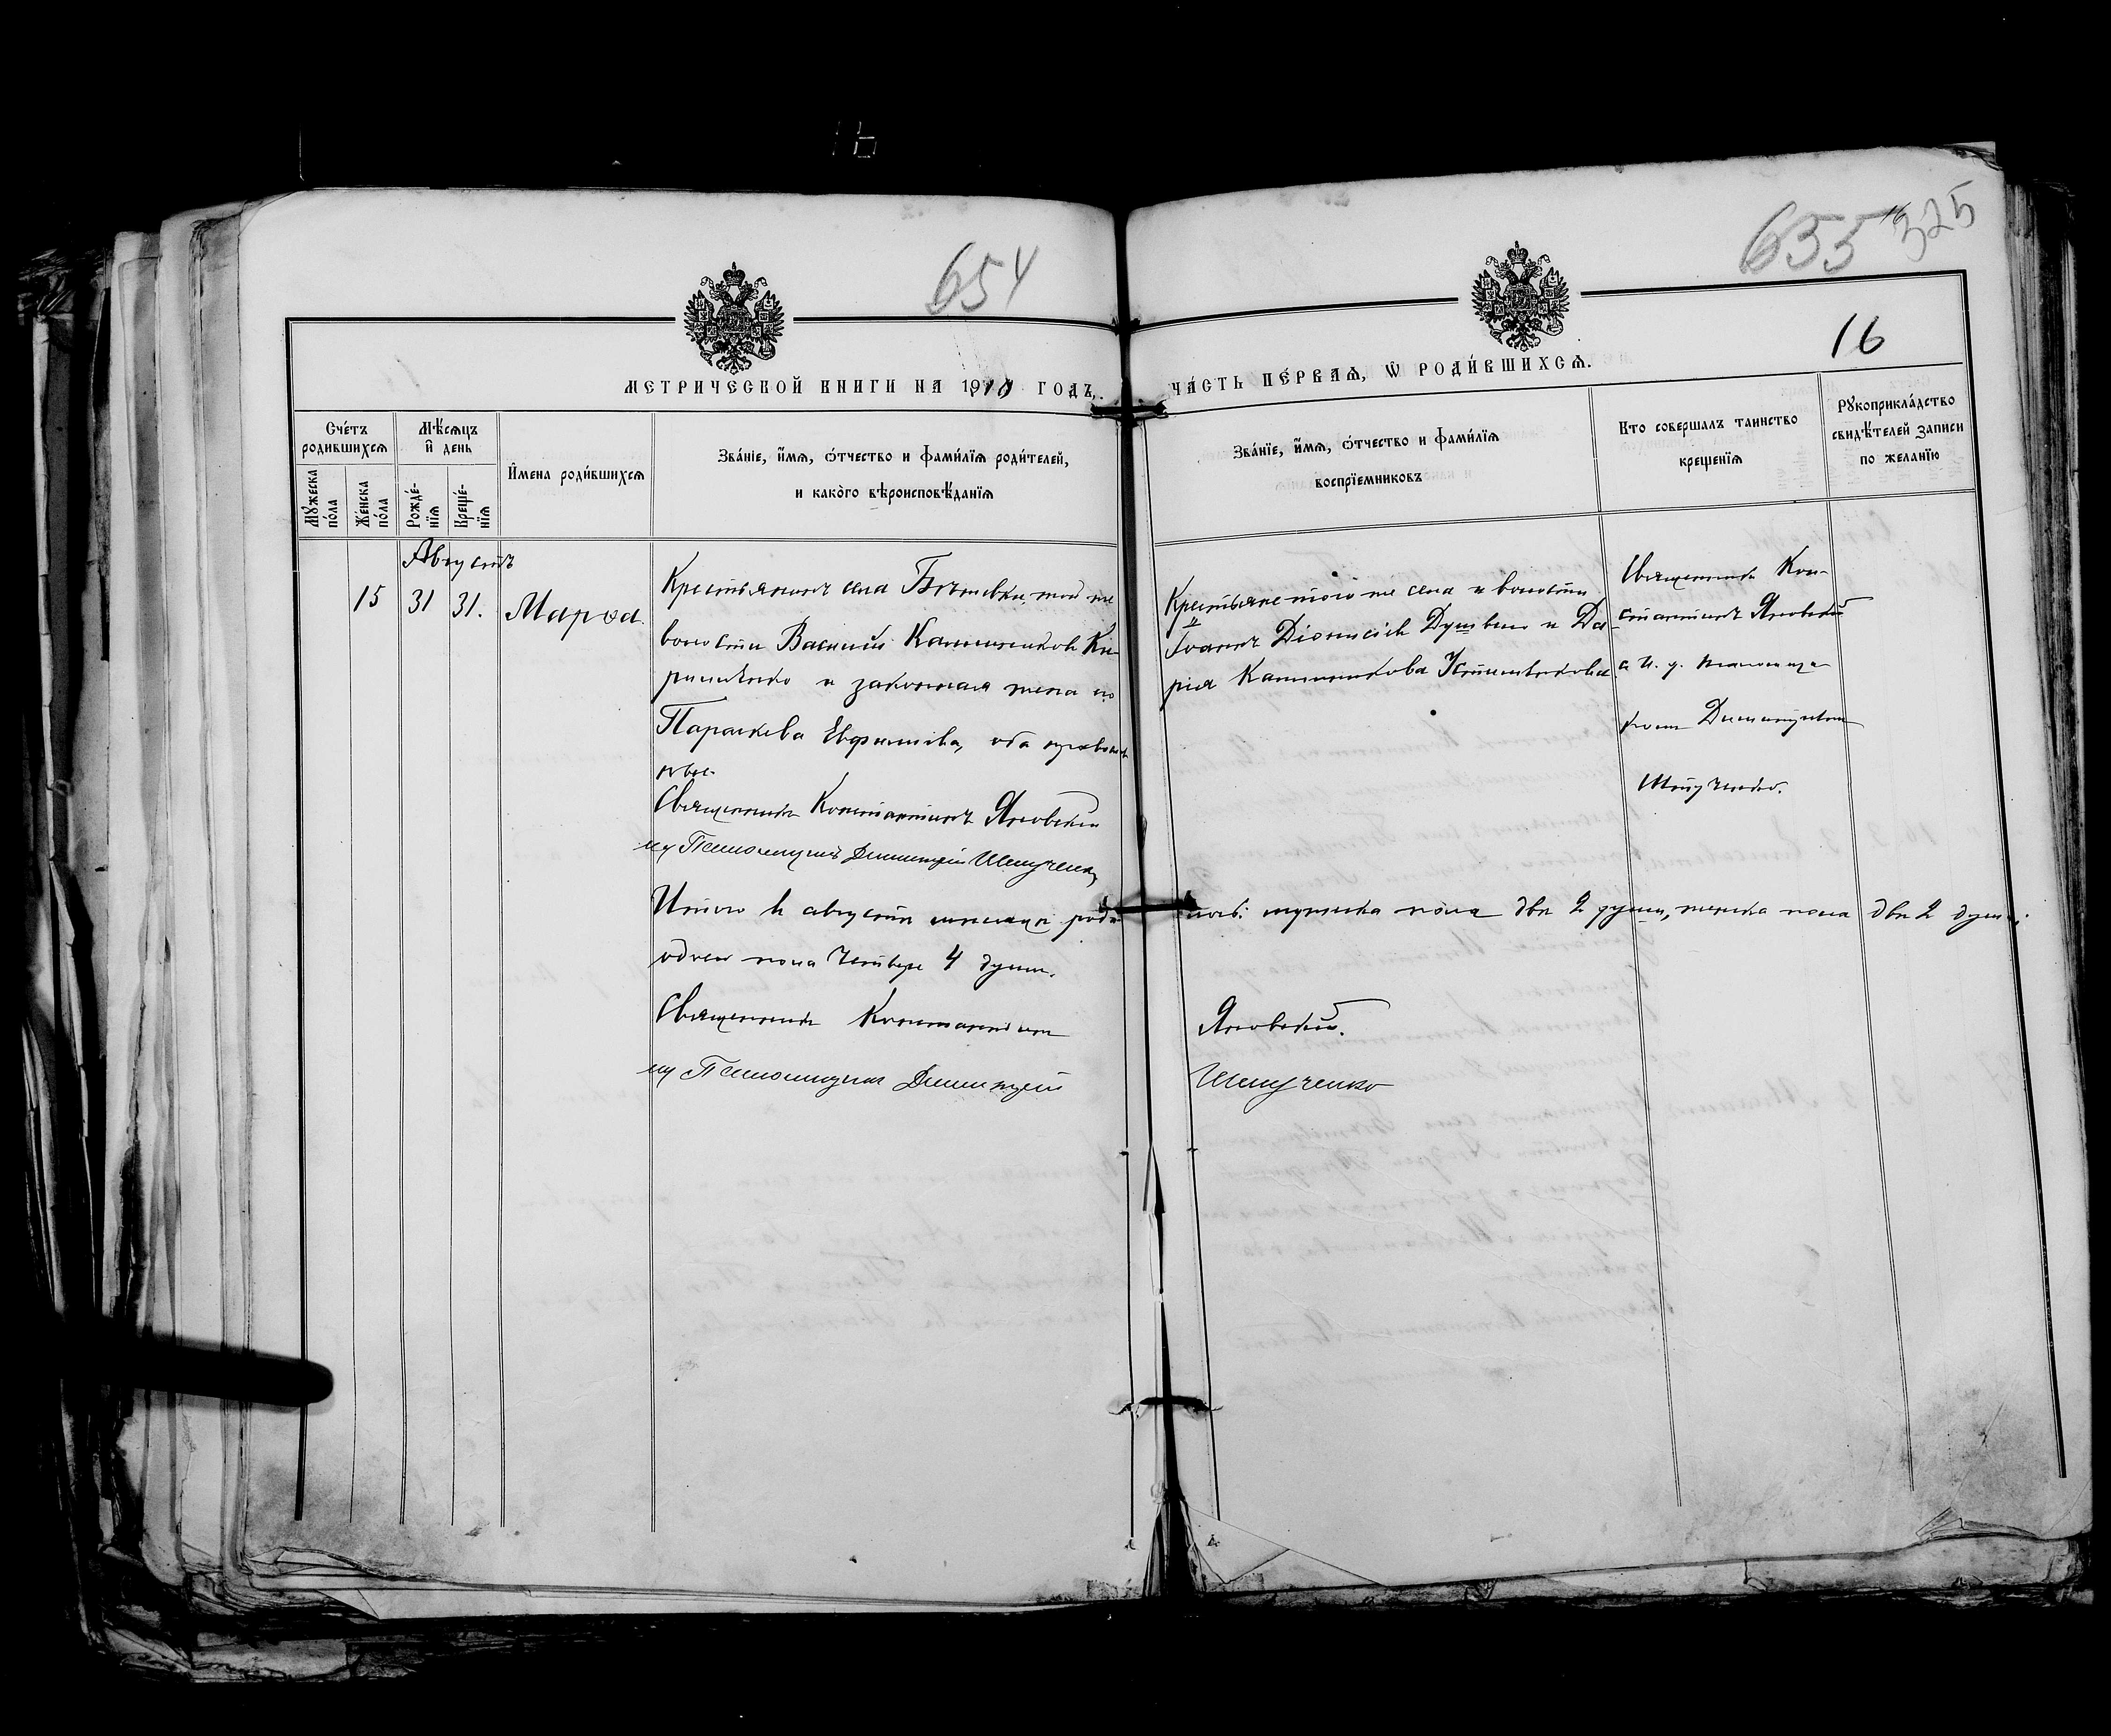 654
655
325
16
МЕТРИЧЕСКОЙ КНИГИ НА 1910 ГОДЪ,
ЧА́СТЬ ПЕ́РВАѦ, Ѡ҆ РОДИ́ВШИХСѦ.
Сче́тъ родившихсѧ
Мꙋ́жеска по́ла
Же́нска по́ла
Мѣ́сѧцъ и҆ день
Рожде́-нїѧ
Креще́-нїѧ
И҆мена роди́вшихсѧ
Зва́нїе, и҆́мѧ, ѻ҆́тчество и фами́лїѧ роди́телей,
и како́го вѣроисповѣ́данїѧ
Зва́нїе, и҆́мѧ, ѻ҆́тчество и фами́лїѧ
воспрїемниковъ
Кто совершалъ таинство
крещенїѧ
Рꙋкоприкла́дство
свидѣ́телей записи
по желанїю
Августъ
15 31 31. Марѳа.
Крестьянинъ села тои же
волости Василій Каллиниковъ Ки-
риленко и законная жена его
Параскева Евфимова, оба православ-
ные.
Священникъ Константинъ Яновскій
Псаломщикъ Димитрій
Крестьяне того же села и волости
Іоаннъ Діонисіевъ и Да-
рія Каллиникова
Священникъ Кон-
стантинъ Яновскій
с и. д. псаломщи-
комъ Димитріемъ
Итого въ августѣ мѣсяцѣ роди-
лось: мужеска пола двѣ 2 души, женска пола двѣ 2 души,
обоего пола четыре 4 души.
Священникъ Константинъ
Яновскій.
Псаломщикъ Димитрій